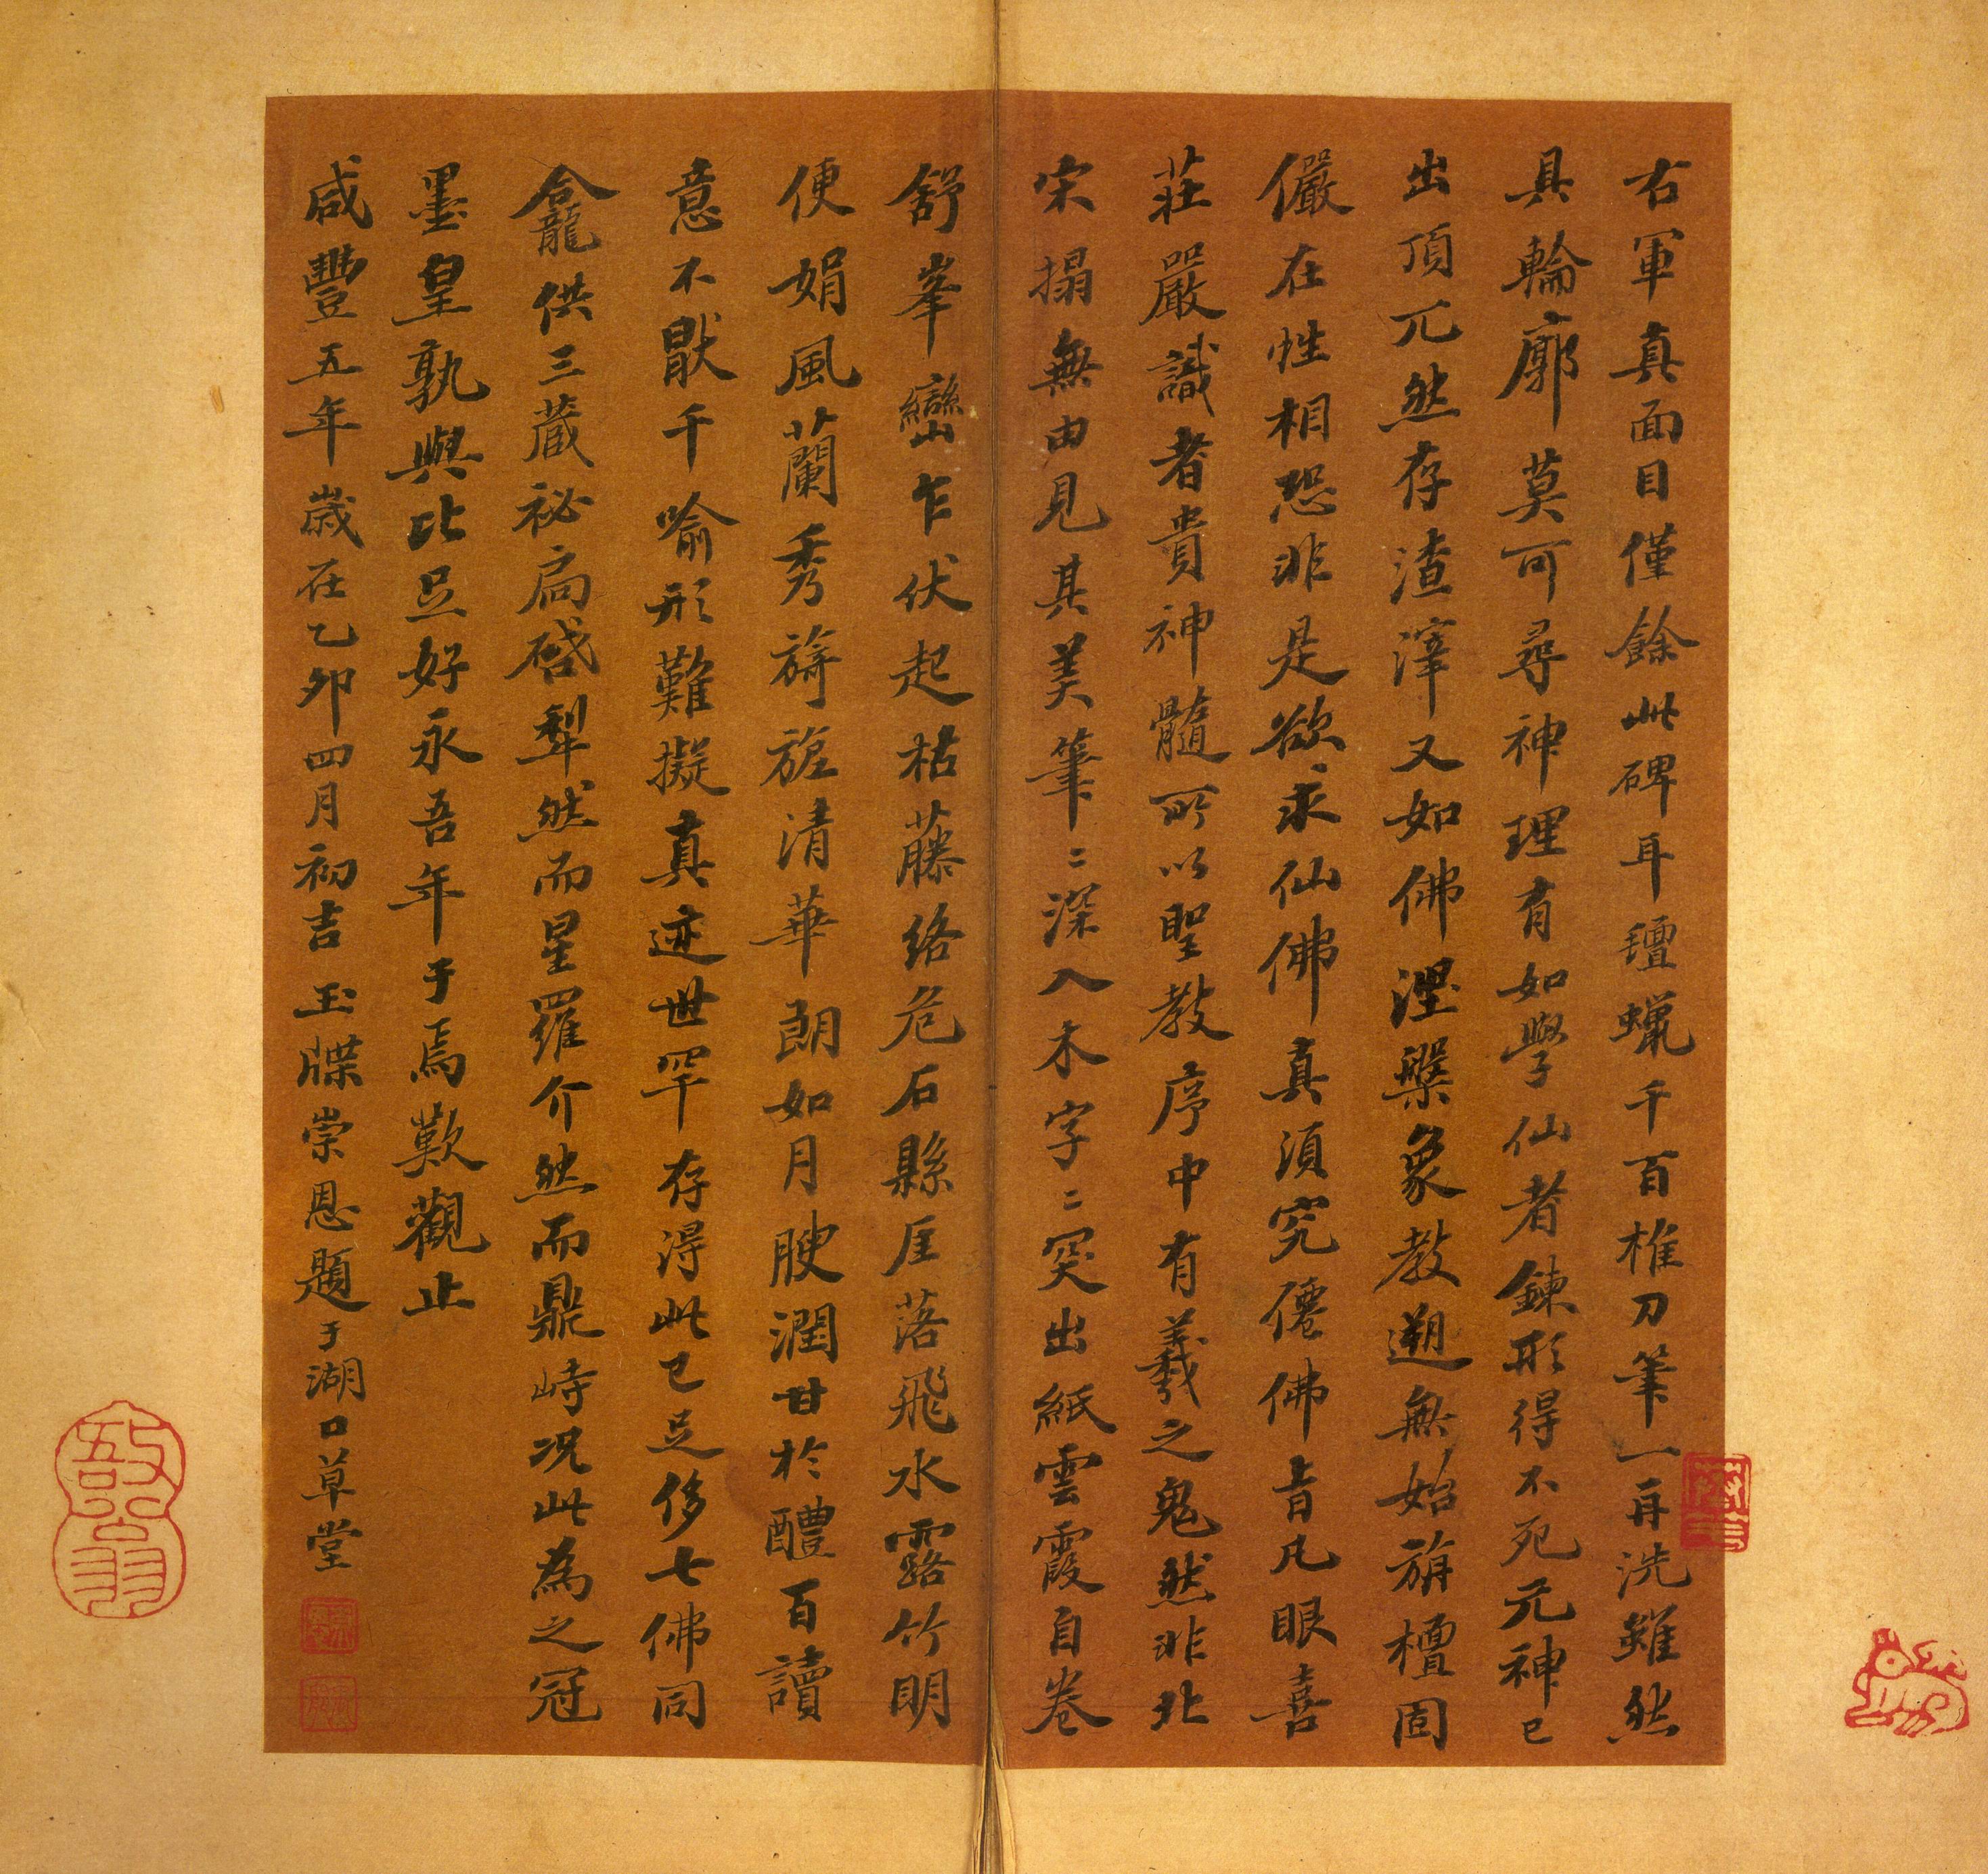 右軍真面目僅餘此碑耳氊蠟千百椎刀筆一再洗雖然
具輪廓莫可尋神理有如學仙者鍊形得不死元神已
出頂兀然存渣滓又如佛涅槃象教遡無始旃檀固
儼在性相恐非是欲求仙佛真須究僊佛旨凡眼喜
莊嚴識者貴神髓所以聖教序中有羲之鬼然非北
宋搨無由見其美筆〻深入木字〻突出紙雲霞自卷
舒峯巒乍伏起枯藤絡危石縣厓落飛水露竹明
便娟風蘭秀旖旎清華朗如月腴潤甘於醴百讀
意不猒千喻形難擬真迹世罕存得此已足侈七佛同
龕供三藏祕扃啓犁然而星羅介然而鼎峙况此為之冠
墨皇孰與比昷好永吾年于焉歎觀止
咸豐五年歲在乙卯四月初吉玉牒崇恩題于湖口草堂